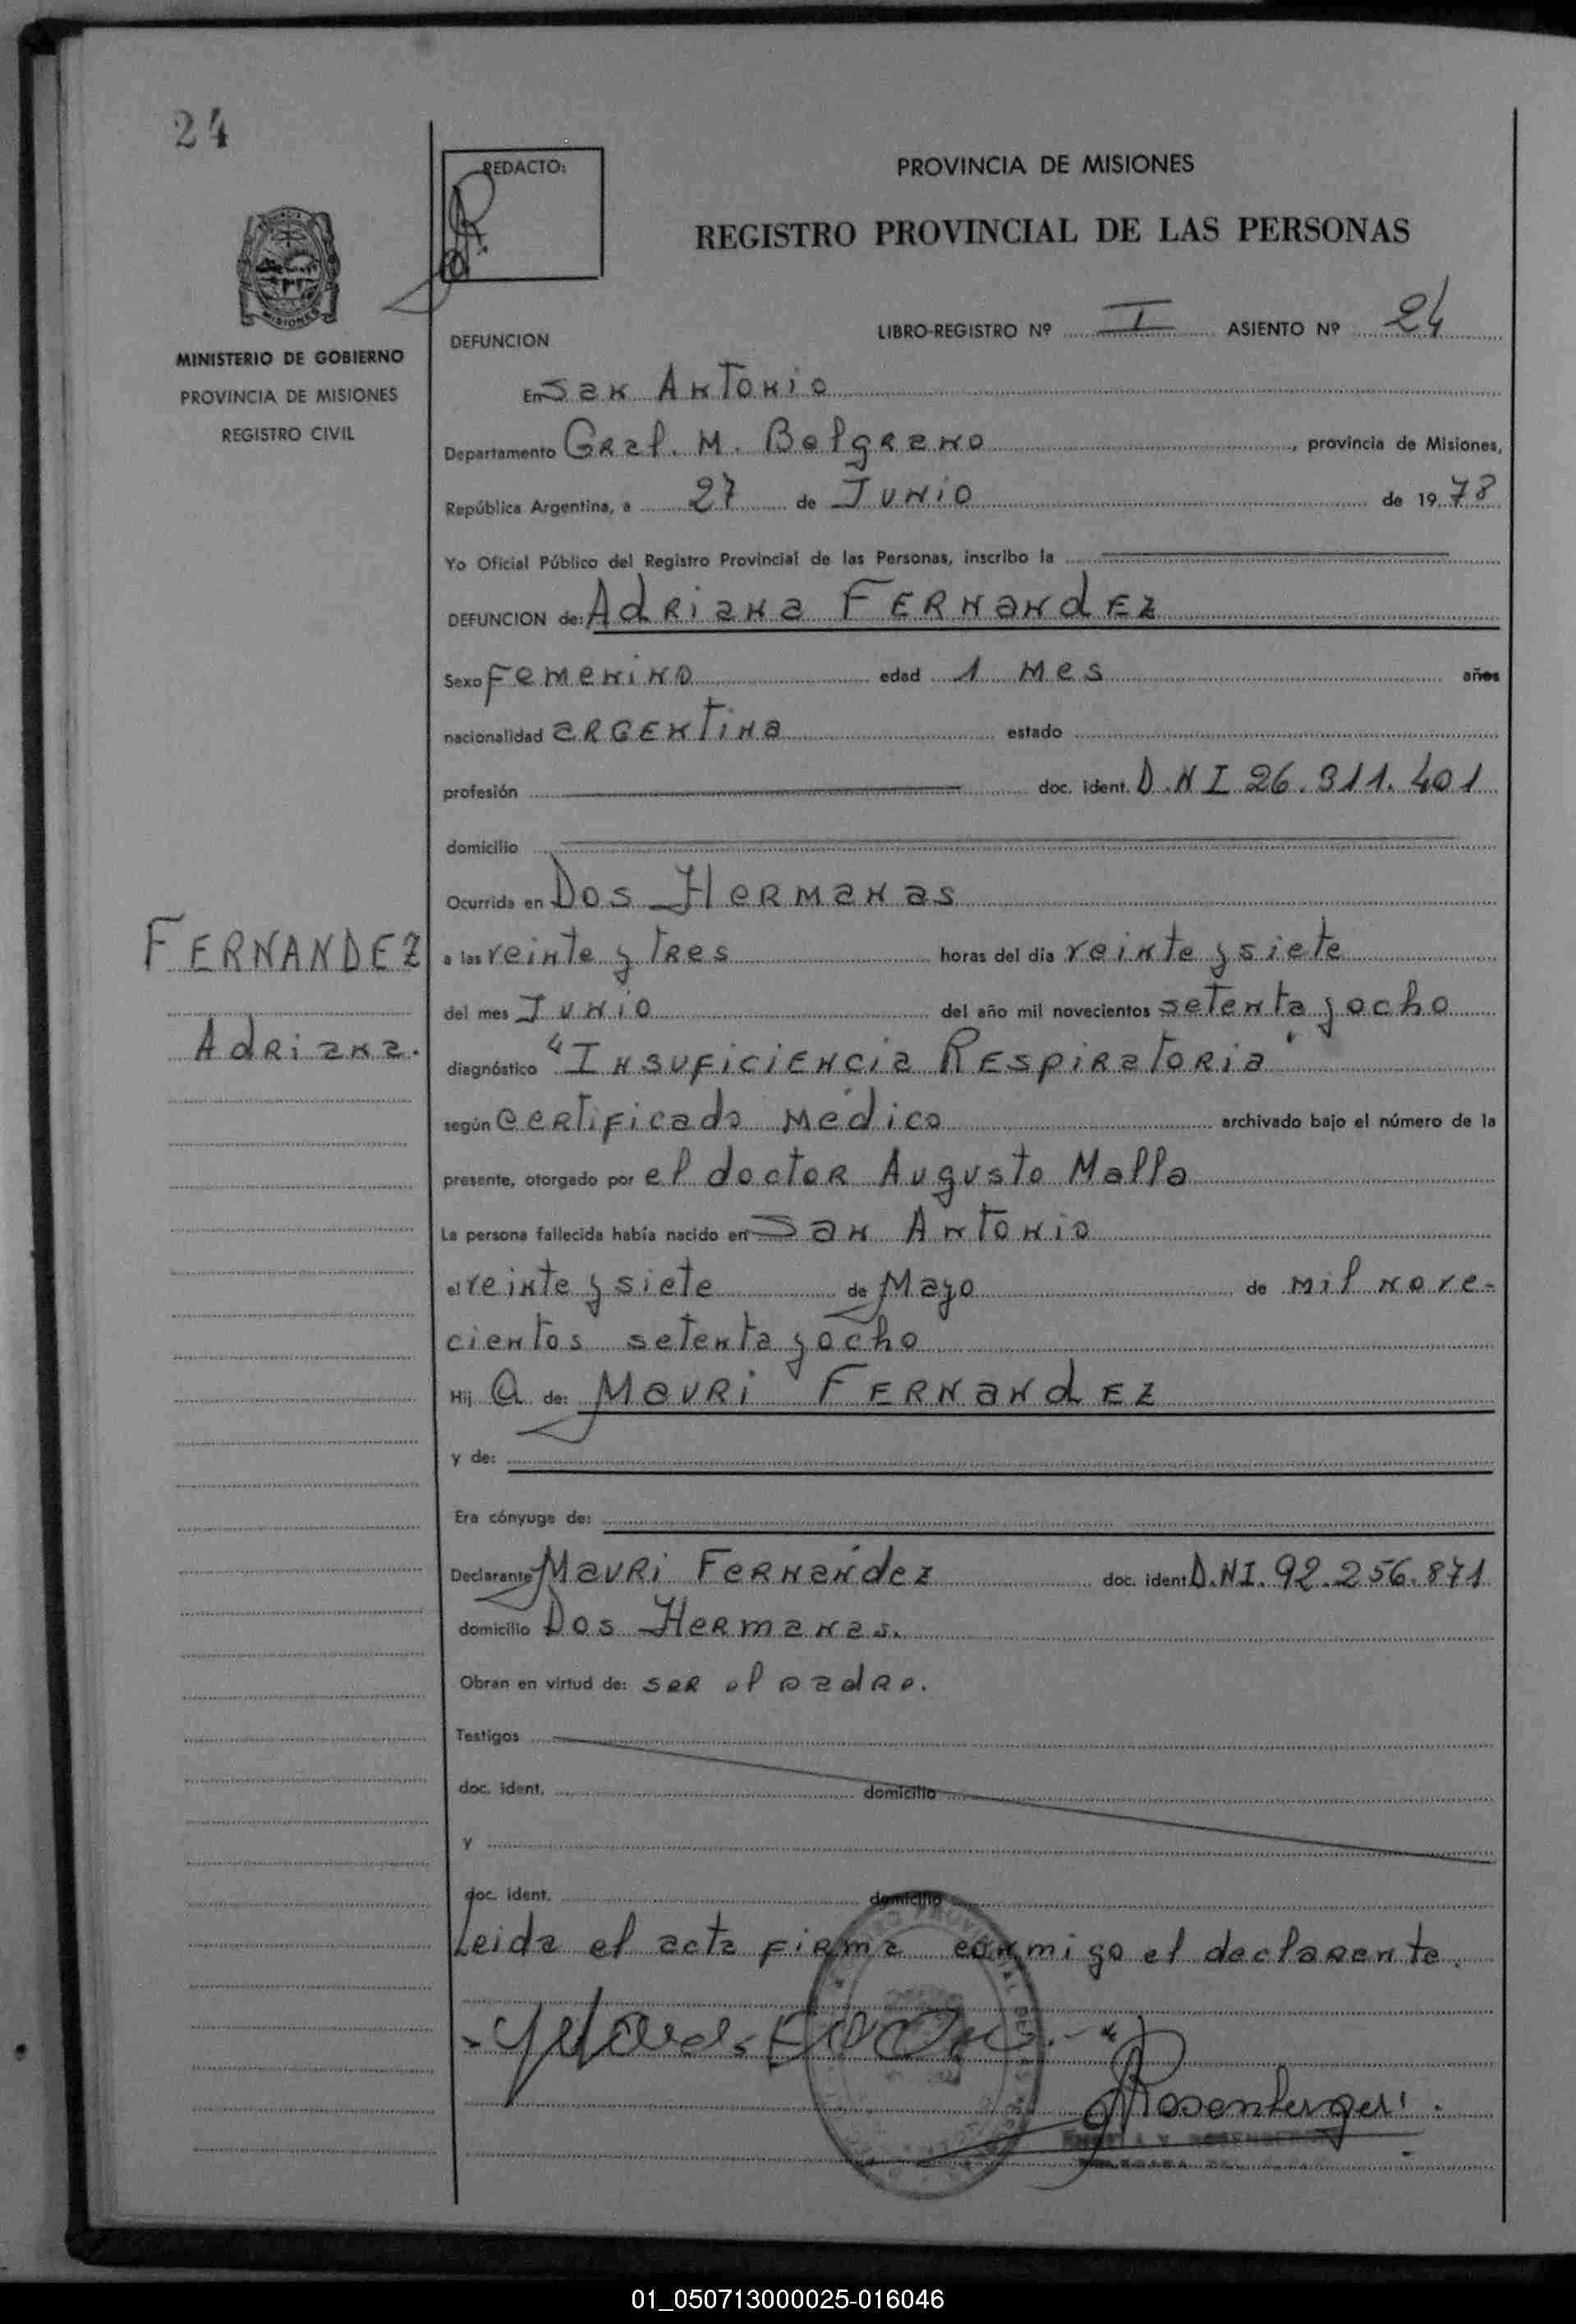 24
REDACTO:
PROVINCIA DE MISIONES
REGISTRO PROVINCIAL DE LAS PERSONAS
MISIONES
MINISTERIO DE GOBIERNO
PROVINCIA DE MISIONES
REGISTRO CIVIL
DEFUNCION
LIBRO-REGISTRO Nº I ASIENTO Nº 24
En San Antonio
Departamento Gral. M. Belgrano, provincia de Misiones,
República Argentina, a 27 de Junio de 1978
Yo Oficial Público del Registro Provincial de las Personas, inscribo la
DEFUNCION de: Adriana FERNandEZ
Sexo Femenino edad 1 mes años
nacionalidad argentina estado
profesión doc. ident. D.N I 26.311.401
domicilio
Ocurrida en Dos Hermanas
FERNANDEZ
Adriana.
a las veinte y tres horas del día veinte y siete
del mes Junio del año mil novecientos setenta y ocho
diagnóstico "Insuficiencia Respiratoria"
según certificado médico archivado bajo el número de la
presente, otorgado por el doctor Augusto Malla
La persona fallecida había nacido en San Antonio
el veinte y siete de Mayo de mil nove-
cientos setenta y ocho
Hij a de: Mauri FERNandEZ
y de:
Era cónyuge de:
Declarante Mauri Fernández doc. ident D.NI. 92.256.871
domicilio Dos Hermanas.
Obran en virtud de: ser el padre.
Testigos
doc. ident. domicilio
y
doc. ident. domicilio
Leida el acta firma conmigo el declarante.
Rosenberger
01_050713000025-016046